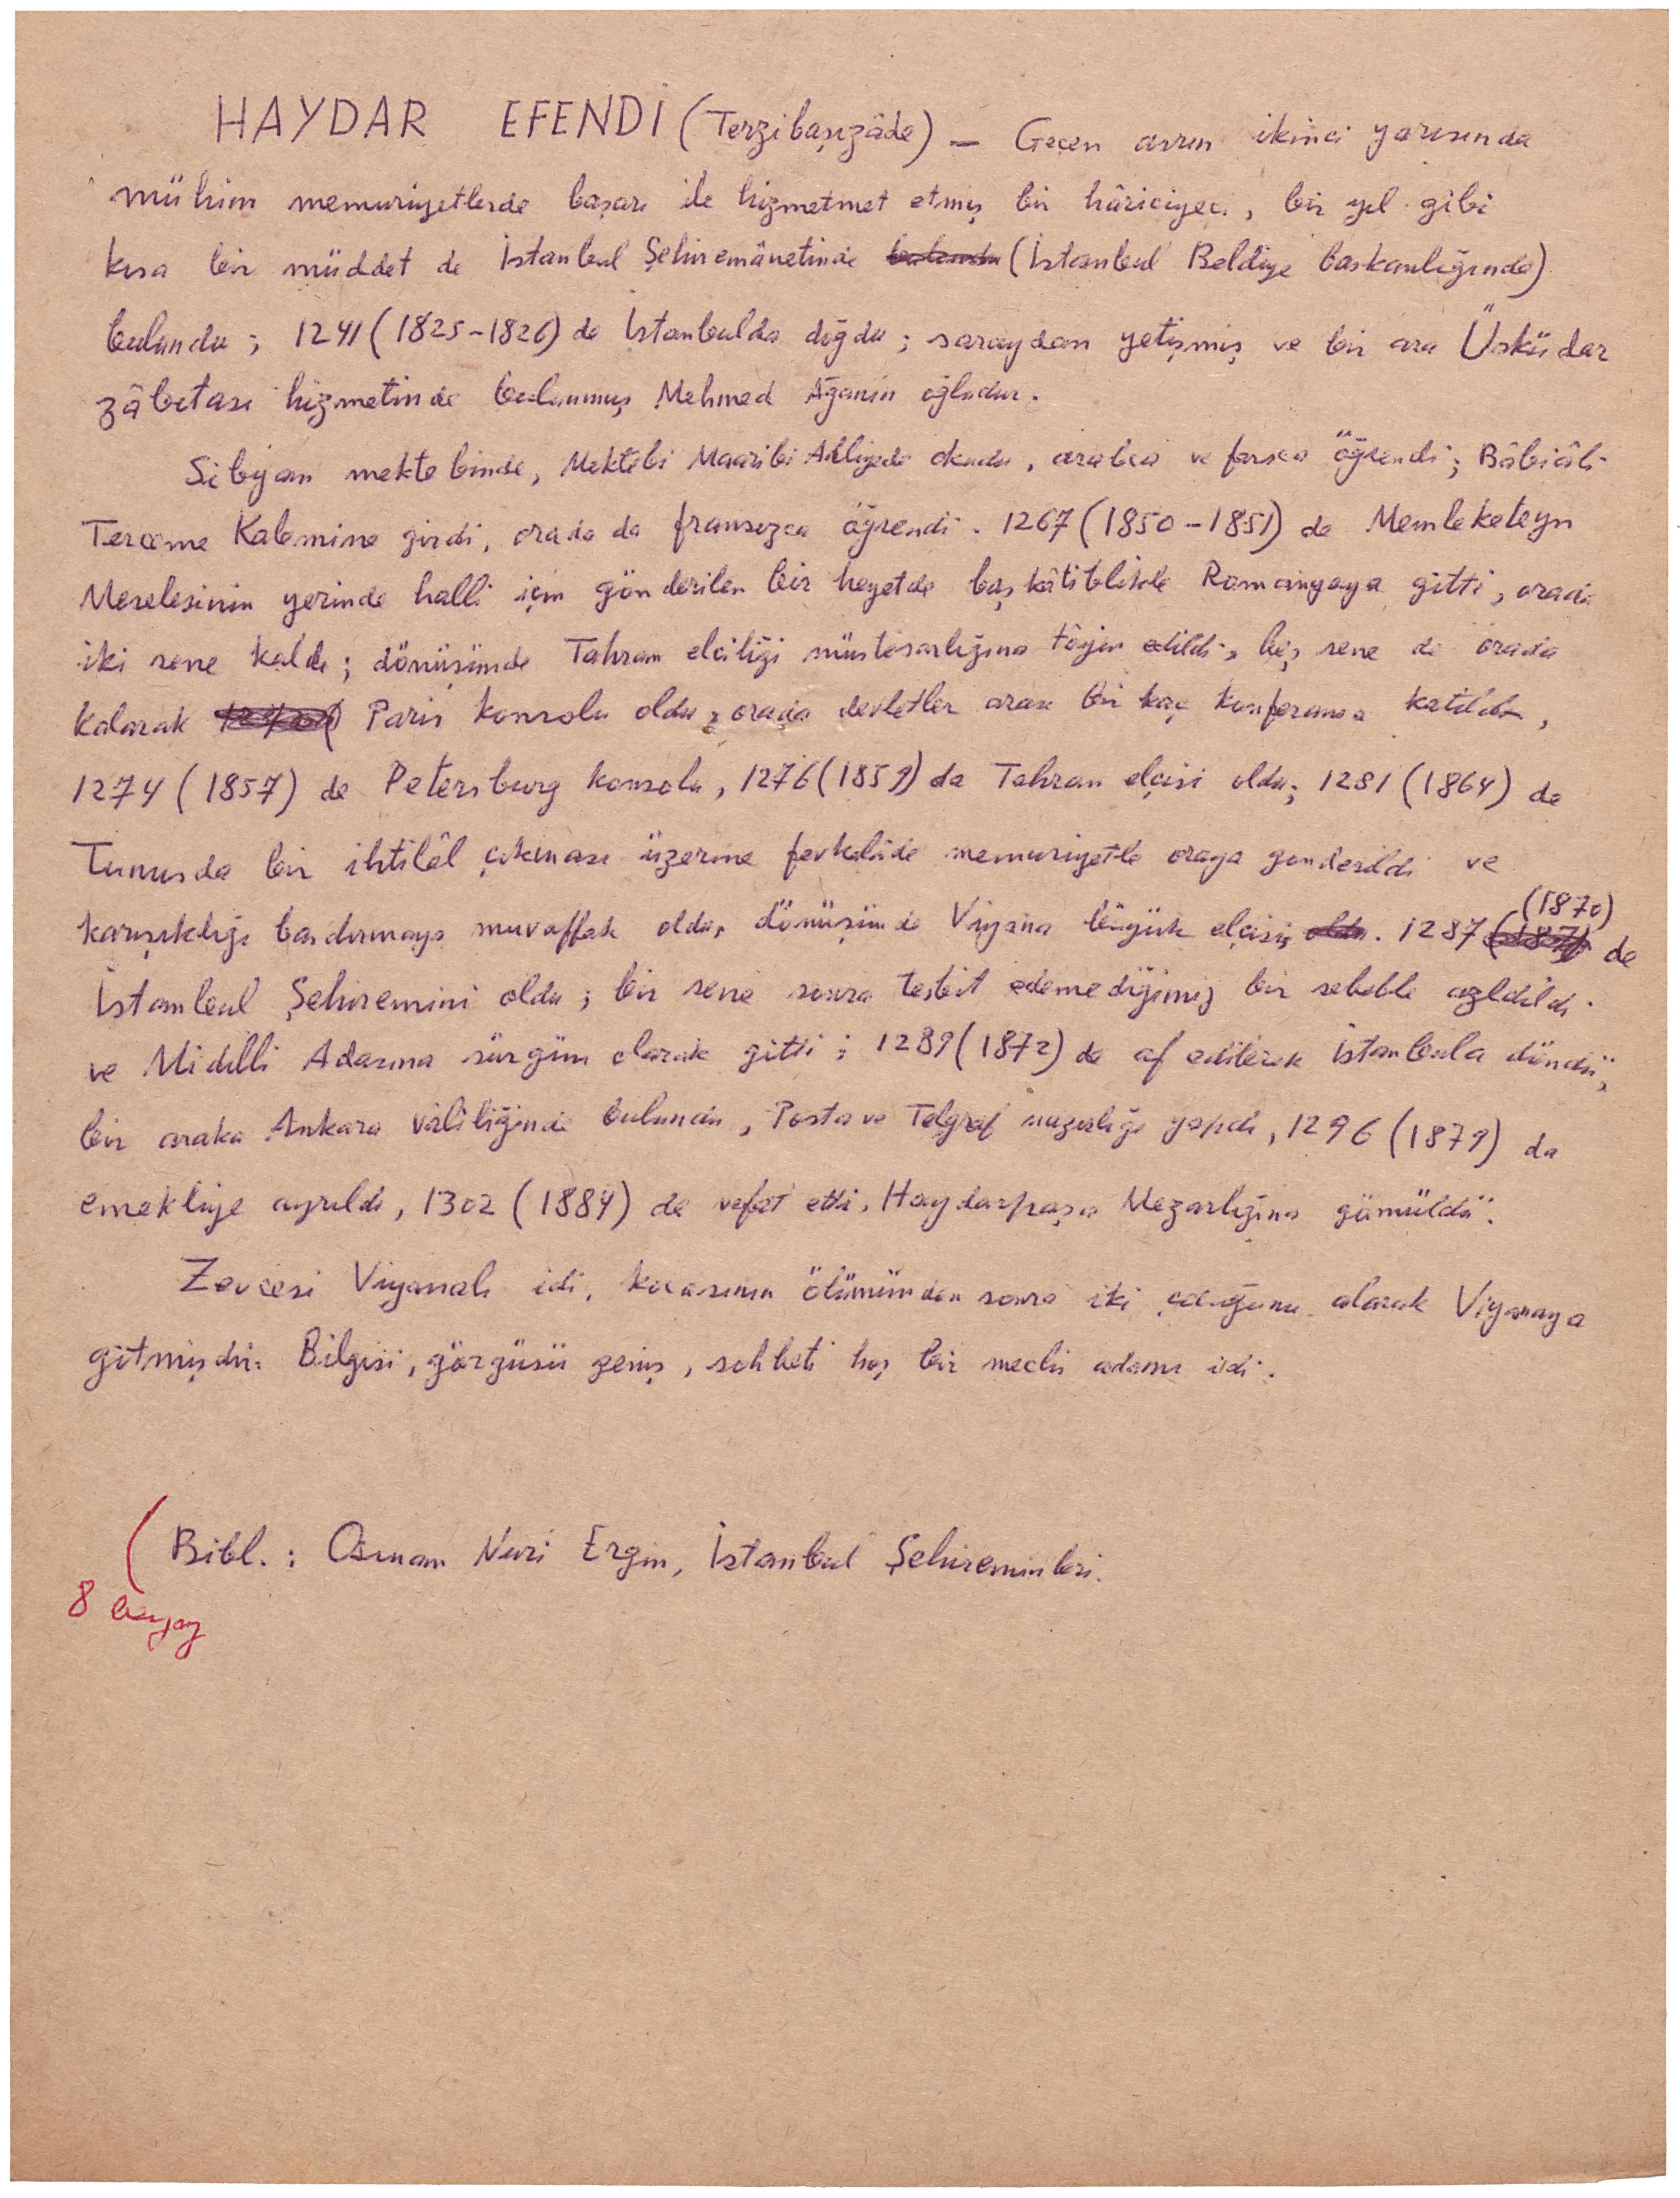 HAYDAR EFENDİ (Terzibaşızâde) — Geçen asrın ikinci yarısında
mühim memuriyetlerde başarı ile hizmetmet etmiş bir hâriciyeci, bir yıl gibi
kısa bir müddet de İstanbul Şehiremânetinde bulundu (İstanbul Beldiye başkanlığında)
bulundu; 1241 (1825-1826) da İstanbulda doğdu; saraydan yetişmiş ve bir ara Üsküdar
zâbıtası hizmetinde bulunmuş Mehmed Ağanın oğludur.
Sıbyan mektebinde, Mektebi Maarifi Adliyede okudu, arabca ve farsca öğrendi; Bâbıâli
Terceme Kalemine girdi, orada da fransızca öğrendi. 1267 (1850-1851) de Memleketeyn
Meselesinin yerinde halli için gönderilen bir heyetde baş kâtiblikle Romanyaya gitti, orada
iki sene kaldı; dönüşünde Tahran elçiliği müsteşarlığına tâyin edildi, beş sene de orada
kalarak Paris konsolu oldu, orada devletler arası bir kaç konferansa katıldı,
1274 (1857) de Petersburg konsolu, 1276 (1859) da Tahran elçisi oldu; 1281 (1864) de
Tunusda bir ihtilâl çıkması üzerine fevkalâde memuriyetle oraya gönderildi ve
karışıklığı basdırmaya muvaffak oldu, dönüşünde Viyana büyük elçisi, oldu. 1287 (1870) de
İstanbul Şehiremini oldu; bir sene sonra tesbit edemediğimiz bir sebeble azledildi
ve Midilli Adasına sürgün olarak gitti; 1289 (1872) da af edilerek İstanbula döndü,
bir aralık Ankara vâliliğinde bulundu, Posta ve Telgraf nazırlığı yapdı, 1296 (1879) da
emekliye ayrıldı, 1302 (1884) de vefat etti, Haydarpaşa Mezarlığına gömüldü.
Zevcesi Viyanalı idi, kocasının ölümünden sonra iki çocuğunu alarak Viyanaya
gitmişdir. Bilgisi, görgüsü geniş, sohbeti hoş bir meclis adamı idi.
(Bibl. : Osman Nuri Ergin, İstanbul Şehireminleri.
8 beyaz